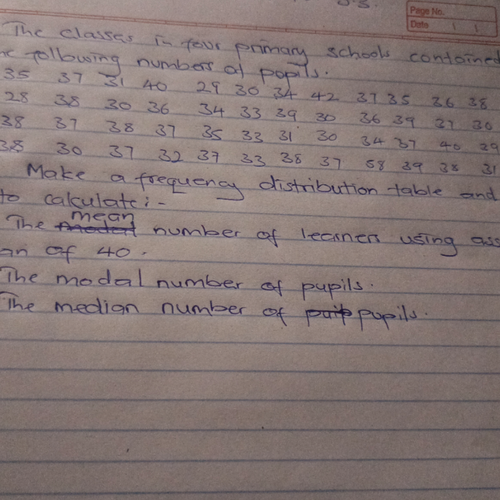 Page No.
Date
The classes in four primary schools contained
following number of pupils.
35 37 31 40 29 30 34 42 37 35 36 38
28 38 30 36 34 33 39 30 36 39 37 30
38 37 38 37 35 33 31 30 34 37 40 29
38 30 37 32 37 33 38 37 58 39 38 31
Make a frequency distribution table and
to calculate:-
mean
The number of learners using
an of 40.
The modal number of pupils.
The median number of pupils.